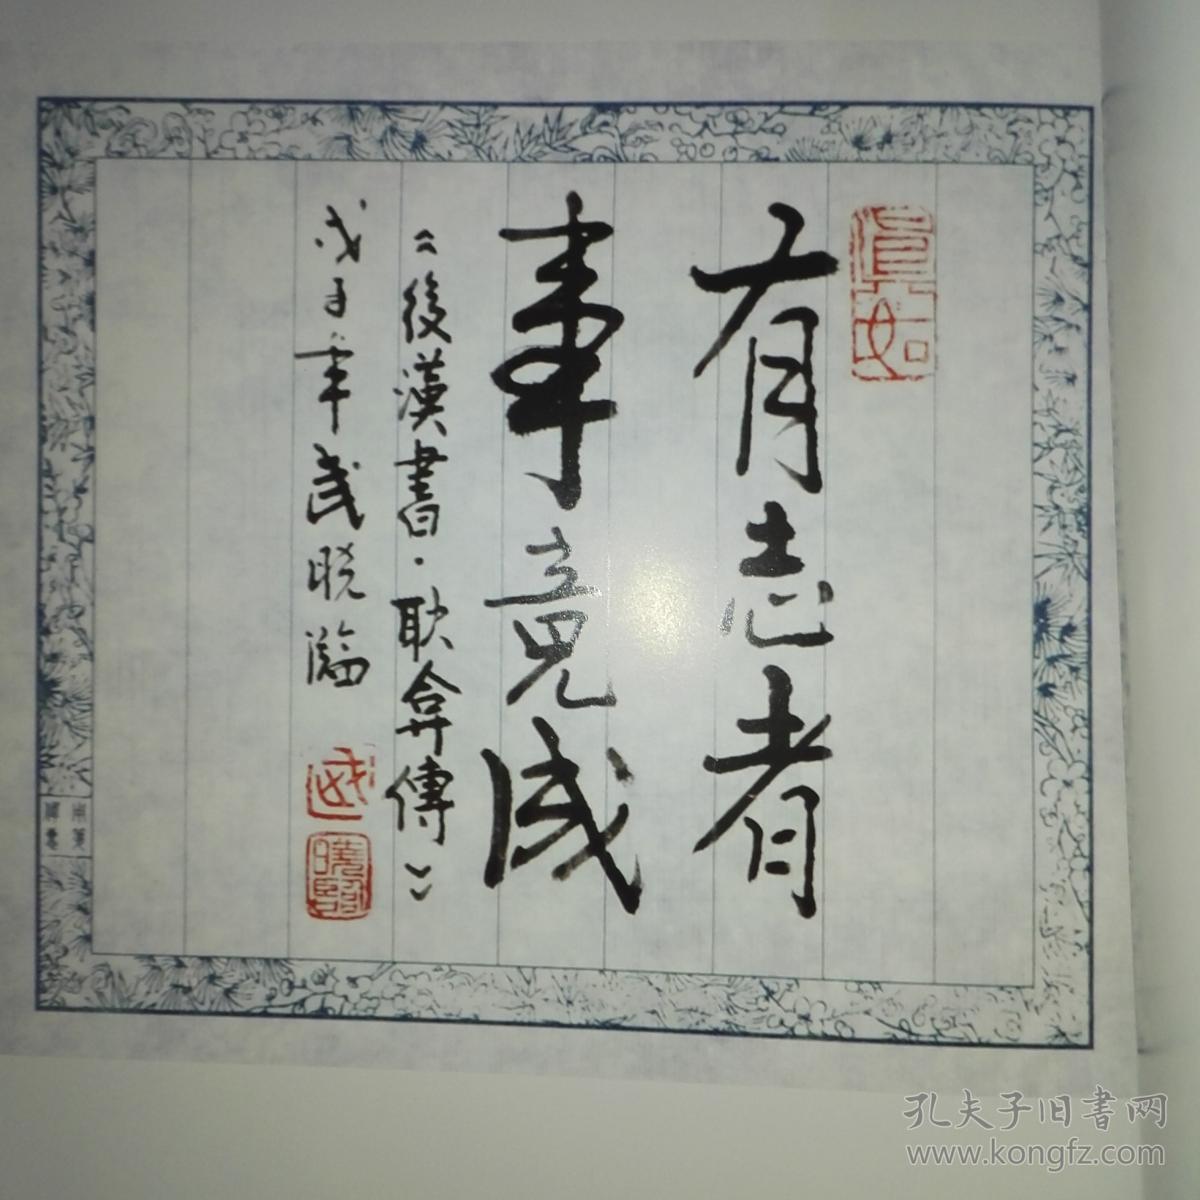 有志者
事竟成
《後漢書·耿弇傳》
戊子年武晓
孔夫子旧书网
www.kongfz.com